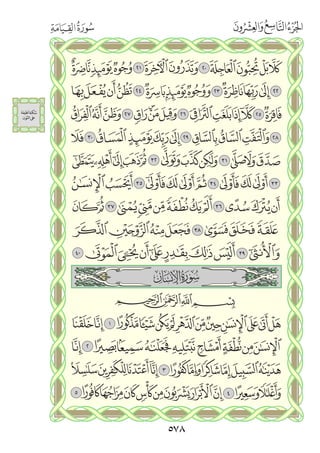 الجُزْءُ التَّاسِعُ وَالعِشْرُونَ
سُورَةُ القِيَامَةِ
كَلَّا بَلْ تُحِبُّونَ ٱلْعَاجِلَةَ ٢٠ وَتَذَرُونَ ٱلْءَاخِرَةَ ٢١ وُجُوهٌ يَوْمَئِذٍ نَّاضِرَةٌ
٢٢ إِلَىٰ رَبِّهَا نَاظِرَةٌ ٢٣ وَوُجُوهٌ يَوْمَئِذٍۭ بَاسِرَةٌ ٢٤ تَظُنُّ أَن يُفْعَلَ بِهَا
فَاقِرَةٌ ٢٥ كَلَّآ إِذَا بَلَغَتِ ٱلتَّرَاقِيَ ٢٦ وَقِيلَ مَنْ ۜ رَاقٍ ٢٧ وَظَنَّ أَنَّهُ ٱلْفِرَاقُ
٢٨ وَٱلْتَفَّتِ ٱلسَّاقُ بِٱلسَّاقِ ٢٩ إِلَىٰ رَبِّكَ يَوْمَئِذٍ ٱلْمَسَاقُ ٣٠ فَلَا
صَدَّقَ وَلَا صَلَّىٰ ٣١ وَلَٰكِن كَذَّبَ وَتَوَلَّىٰ ٣٢ ثُمَّ ذَهَبَ إِلَىٰٓ أَهْلِهِۦ يَتَمَطَّىٰٓ
٣٣ أَوْلَىٰ لَكَ فَأَوْلَىٰ ٣٤ ثُمَّ أَوْلَىٰ لَكَ فَأَوْلَىٰٓ ٣٥ أَيَحْسَبُ ٱلْإِنسَٰنُ
أَن يُتْرَكَ سُدًى ٣٦ أَلَمْ يَكُ نُطْفَةً مِّن مَّنِىٍّ يُمْنَىٰ ٣٧ ثُمَّ كَانَ
عَلَقَةً فَخَلَقَ فَسَوَّىٰ ٣٨ فَجَعَلَ مِنْهُ ٱلزَّوْجَيْنِ ٱلذَّكَرَ
وَٱلْأُنثَىٰٓ ٣٩ أَلَيْسَ ذَٰلِكَ بِقَٰدِرٍ عَلَىٰٓ أَن يُحْـِۧىَ ٱلْمَوْتَىٰ ٤٠
سُورَةُ الإِنسَانِ
بِسْمِ ٱللَّهِ ٱلرَّحْمَٰنِ ٱلرَّحِيمِ
هَلْ أَتَىٰ عَلَى ٱلْإِنسَٰنِ حِينٌ مِّنَ ٱلدَّهْرِ لَمْ يَكُن شَيْـًٔا مَّذْكُورًا ١ إِنَّا خَلَقْنَا
ٱلْإِنسَٰنَ مِن نُّطْفَةٍ أَمْشَاجٍ نَّبْتَلِيهِ فَجَعَلْنَٰهُ سَمِيعًۢا بَصِيرًا ٢ إِنَّا
هَدَيْنَٰهُ ٱلسَّبِيلَ إِمَّا شَاكِرًا وَإِمَّا كَفُورًا ٣ إِنَّآ أَعْتَدْنَا لِلْكَٰفِرِينَ سَلَٰسِلَا۟
وَأَغْلَٰلًا وَسَعِيرًا ٤ إِنَّ ٱلْأَبْرَارَ يَشْرَبُونَ مِن كَأْسٍ كَانَ مِزَاجُهَا كَافُورًا ٥
٥٧٨